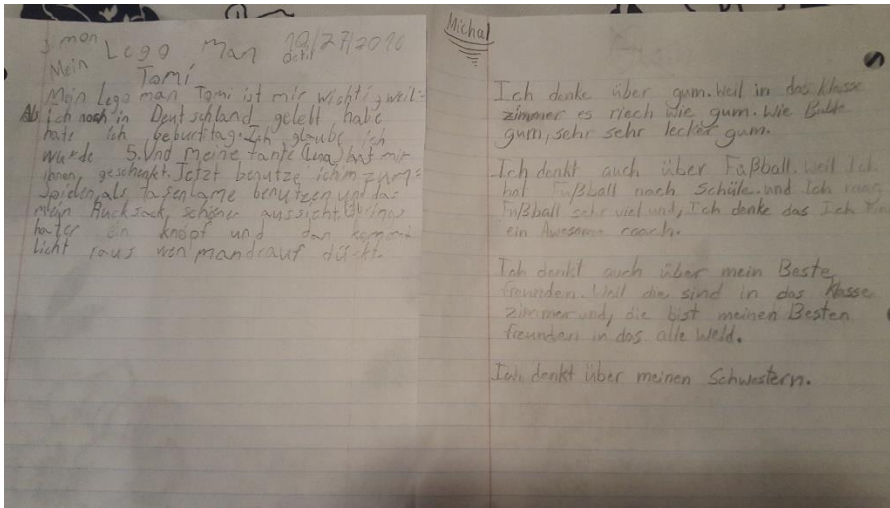 Simon
Lego Man
10/27/2016
Mein
Tomi
Mein Lego man Tomi ist mir wishtig, weil:
Als ich noch in Deutschland gelebt habe
hate ich geburtstag. Ich glaube ich
wurde 5. Und meine tante (Lena) hat mir
ihnen geschenkt. Jetzt benutze ich im zum:
Spielen, als taschenlame benutzen und das
mein Rucksack, schöner aussicht. Übrings
hater ein knopf und dan kommt
licht raus wen man drauf dückt.
Michal
Ich denke über gum. Weil in das klasse
zimmer es riech wie gum. Wie
gum, sehr sehr lecker gum.
Ich denkt auch über Fußball. Weil Ich
hat Fußball nach Schüle. und Ich
Fußball sehr viel und, Ich denke das Ich
ein Awesome coach.
Ich denkt auch über mein Beste
freunden. Weil die sind in das klasse
zimmer und, die bist meinen Besten
freunden in das alle Weld.
Ich denkt über meinen Schwestern.